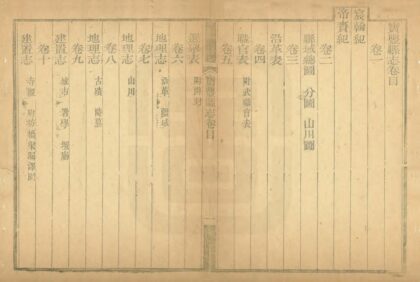 寶應縣志卷目
卷一
宸翰紀
帝賚紀
卷二
縣城總圖 分圖 山川圖
卷三
沿革表
卷四
職官表 附武職官表
卷五
選舉表 附封
卷六
地理志 沿革 疆域
卷七
地理志 山川
卷八
地理志 古蹟 塚墓
卷九
建置志 城市 署學 壇廟
卷十
建置志 寺觀 坊 橋梁